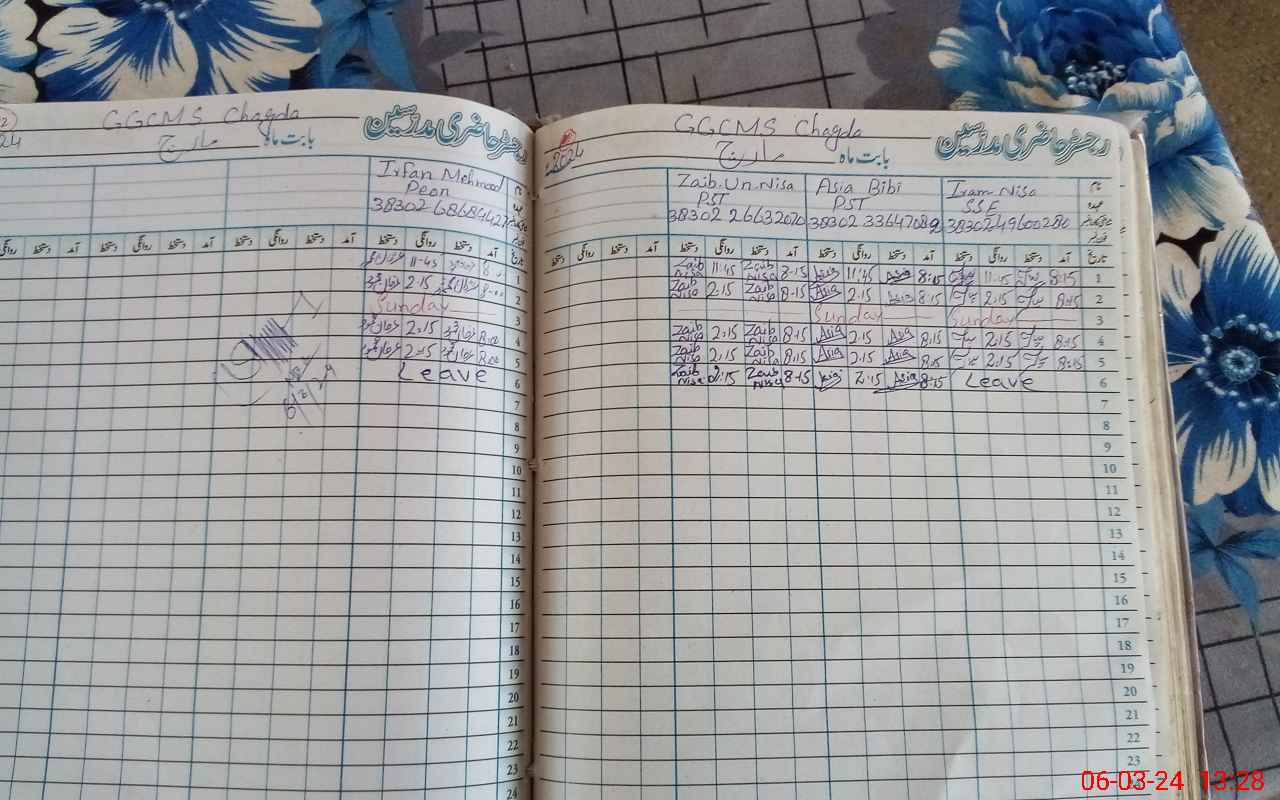 GGCMS Chagda
رجسٹر حاضری مدرسین
بابت ماہ مارچ
Irfan Mehmood
Peon
نام
عہدہ
تاریخ آمد دستخط روانگی دستخط آمد دستخط روانگی دستخط آمد دستخط روانگی
11-45 1
2.15 8-00 2
Sunday 3
2.15 8.00 4
2.15 8.00 5
Leave 6
6/3/24
7
8
9
10
11
12
13
14
15
16
17
18
19
20
21
22
23
24
GGCMS Chagda
رجسٹر حاضری مدرسین
2024
بابت ماہ مارچ
Zaib.Un.Nisa Asia Bibi Iram Nisa نام
PST PST SSE عہدہ
38302 26632020 38302 33647089 3830249600280
تاریخ آمد دستخط روانگی دستخط آمد دستخط روانگی دستخط آمد دستخط روانگی دستخط آمد دستخط روانگی دستخط
Zaib Nisa 11:45 Zaib Nisa 8-15 Asia 11:45 Asia 8:15 11:45 8:15 1
Zaib Nisa 2:15 Zaib Nisa 8-15 Asia 2.15 Asia 8:15 2:15 8:15 2
Sunday Sunday 3
Zaib Nisa 2:15 Zaib Nisa 8:15 Asia 2:15 Asia 8:15 2:15 8:15 4
Zaib Nisa 2:15 Zaib Nisa 8:15 Asia 2:15 Asia 8:15 2:15 8:15 5
Zaib Nisa 2:15 Zaib Nisa 8-15 Asia 2:15 Asia 8-15 Leave 6
7
8
9
10
11
12
13
14
15
16
17
18
19
20
21
22
23
06-03-24 13:28